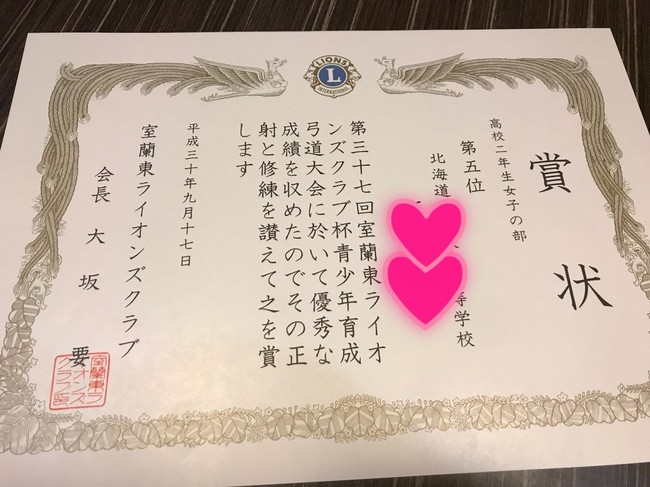 LIONS
L
INTERNATIONAL
賞状
高校二年生女子の部
第五位
北海道
等学校
第三十七回室蘭東ライオ
ンズクラブ杯青少年育成
弓道大会に於いて優秀な
成績を収めたのでその正
射と修練を讃えて之を賞
します
平成三十年九月十七日
室蘭東ライオンズクラブ
会長 大坂 要
室蘭東ラ
イオンズ
クラブ